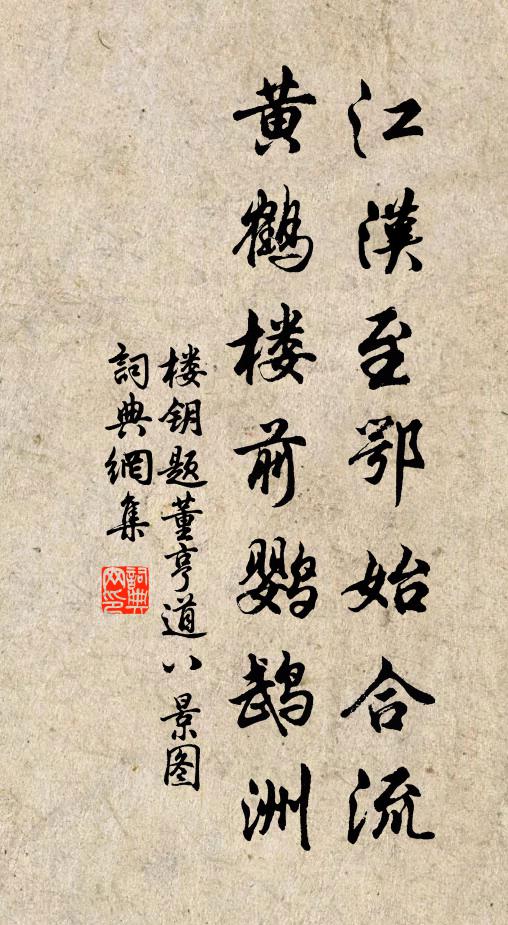 江漢至鄂始合流
黄鶴楼前鹦鹉洲
楼钥题董亨道八景图
詞典網集
詞典網印